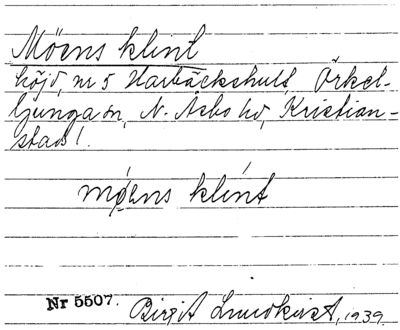 Möens klint
höjd, nr 5 Harbäckshult, Örkel-
ljunga sn, N. Åsbo hd, Kristian-
stads l.
möens klint
Nr 5507. Birgit Lundkvist, 1939.